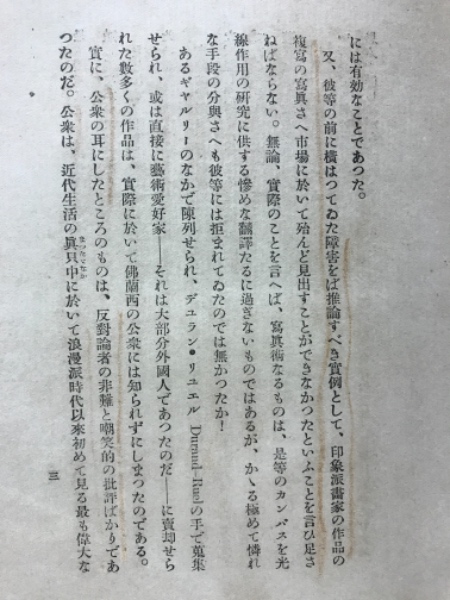 には有効なことであつた。
又、彼等の前に横はつてゐた障害をば推論すべき實例として、印象派畫家の作品の
複寫の寫眞さへ市場に於いて殆んど見出すことができなかつたといふことを言ひ足さ
ねばならない。無論、實際のことを言へば、寫眞術なるものは、是等のカンバスを光
線作用の研究に供する慘めな飜譯たるに過ぎないものではあるが、かゝる極めて憐れ
な手段の分與さへも彼等には拒まれてゐたのでは無かつたか！
あるギャルリーのなかで陳列せられ、デュラン・リユエル Durand-Ruel の手で蒐集
せられ、或は直接に藝術愛好家――それは大部分外國人であつたのだ――に賣却せら
れた數多くの作品は、實際に於いて佛蘭西の公衆には知られずにしまつたのである。
實に、公衆の耳にしたところのものは、反對論者の非難と嘲笑的の批評ばかりであ
つたのだ。公衆は、近代生活の眞只中に於いて浪漫派時代以來初めて見る最も偉大な
三